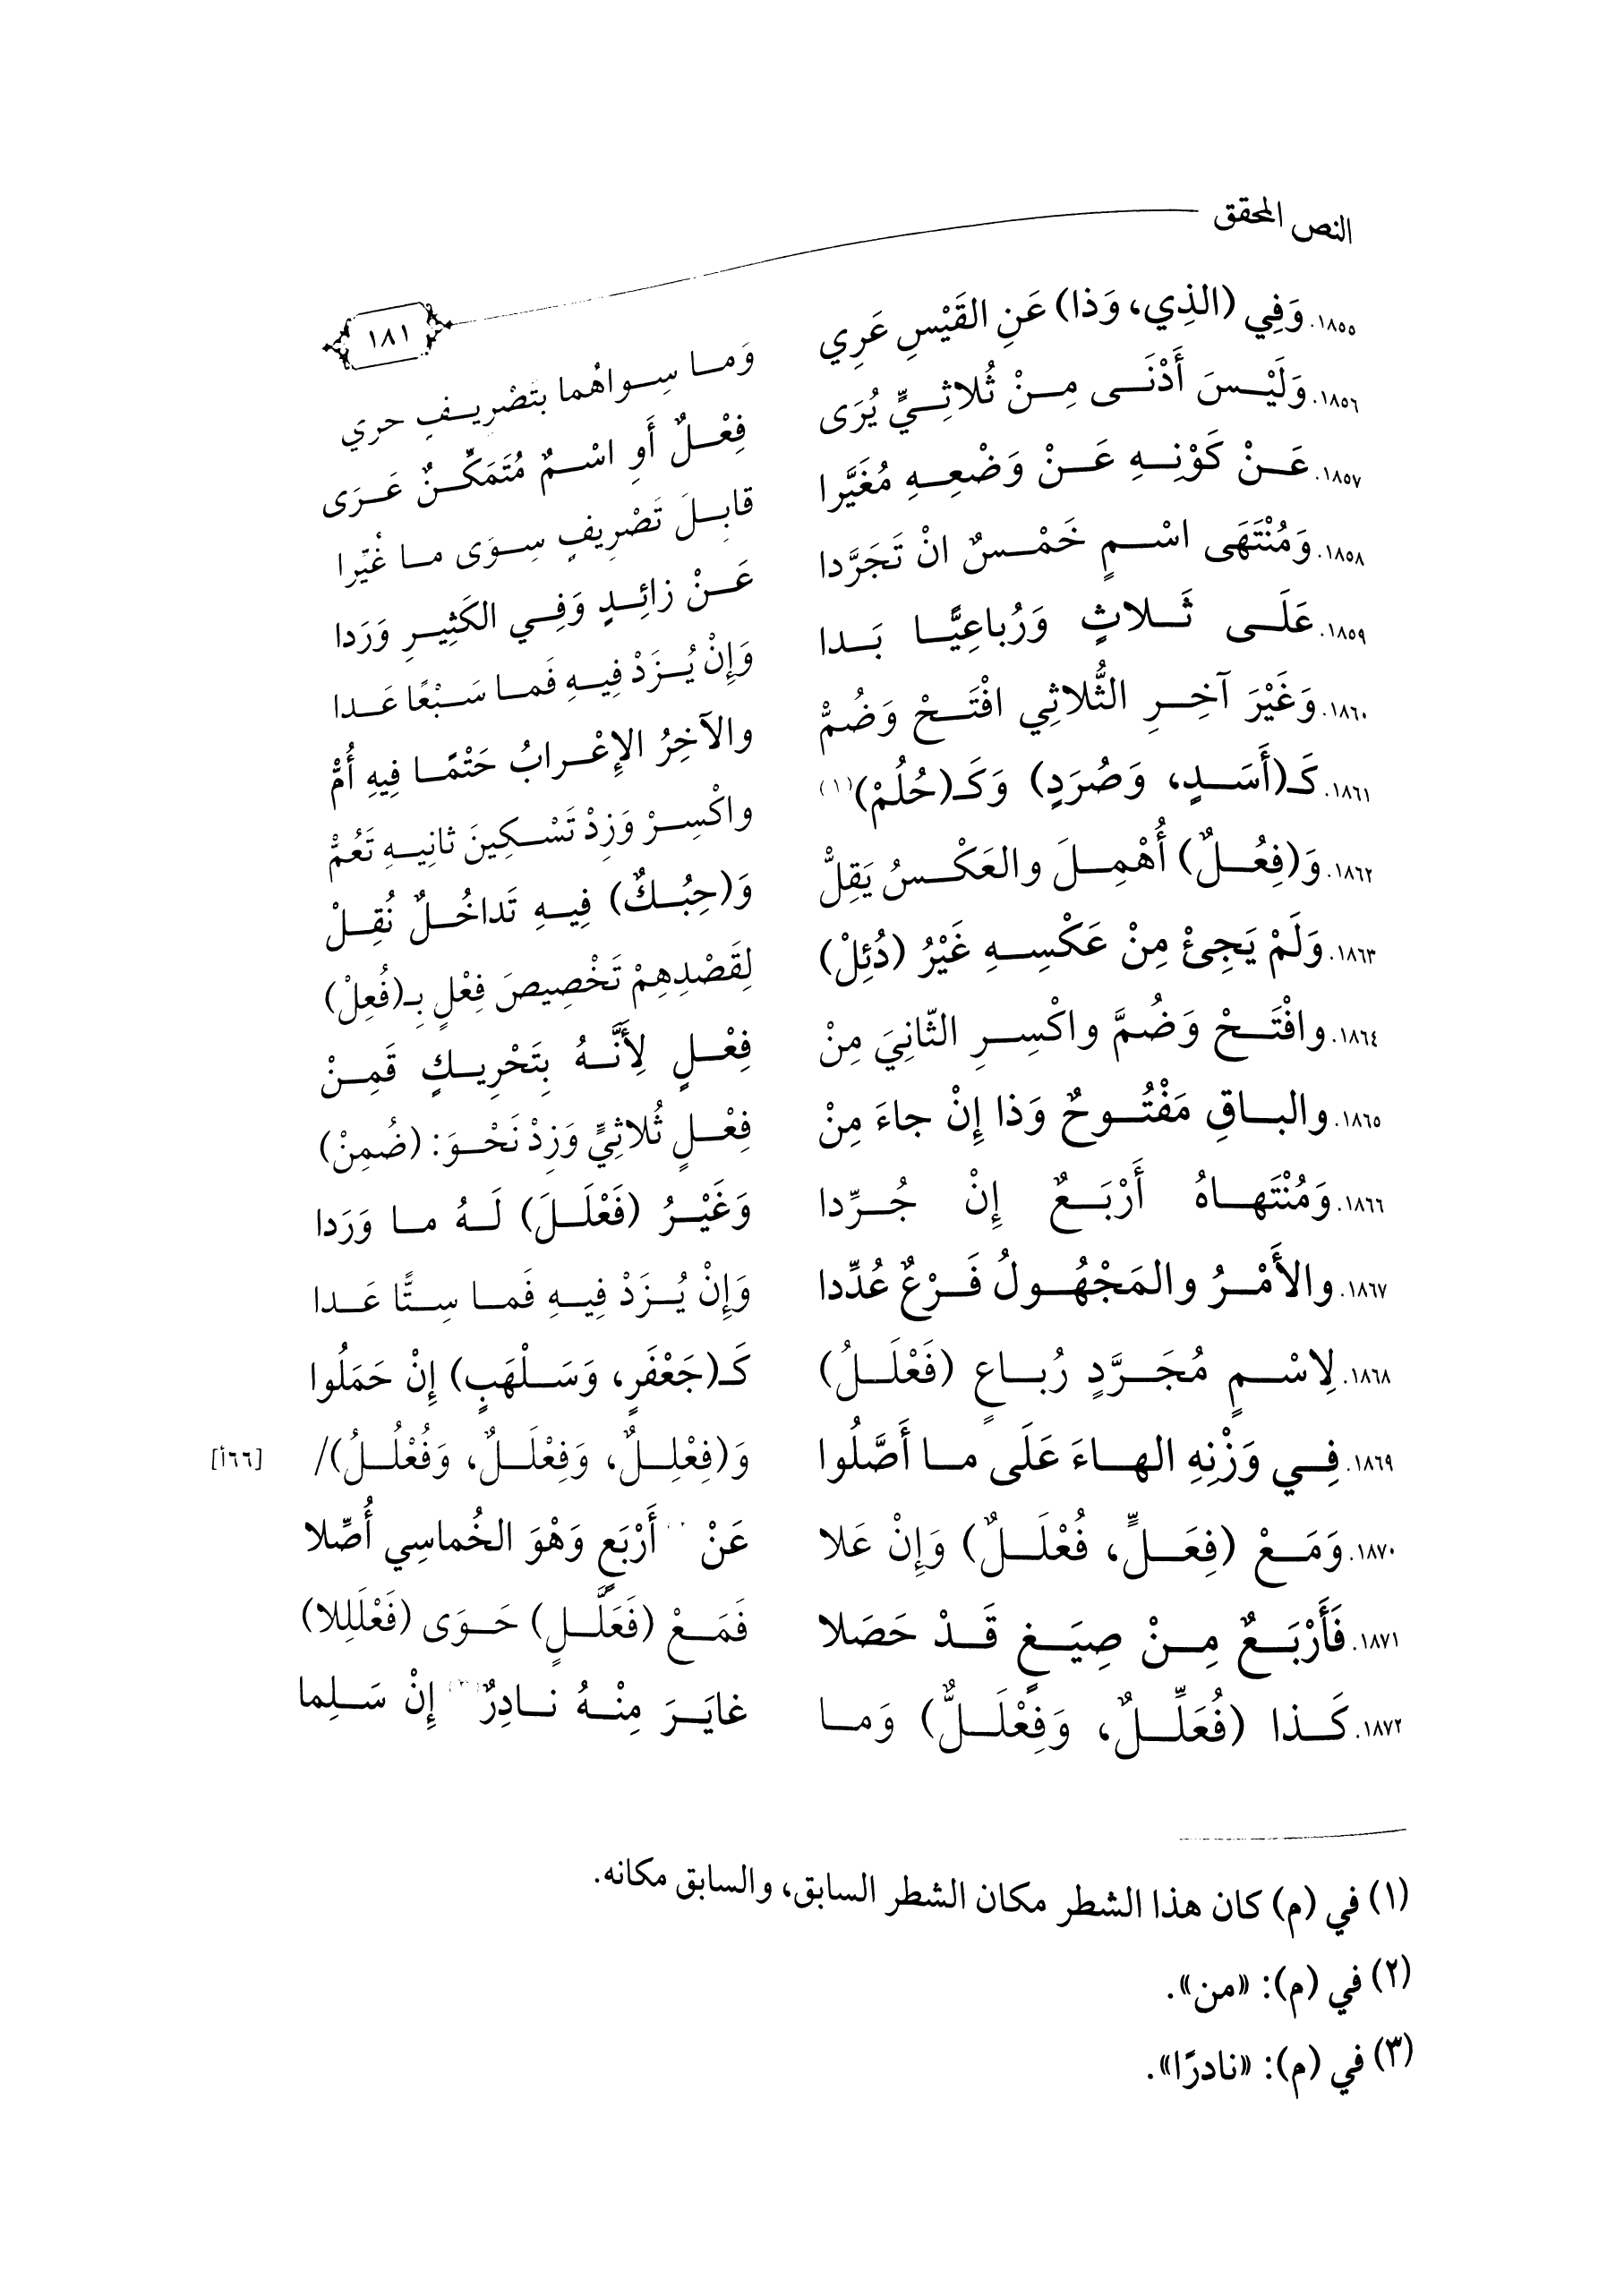 النص المحقق
١٨١
١٨٥٥. وَفِي (الذِي، وَذا) عَنِ القَيْسِ عَرِي وَما سِواهُما بتَصْرِيفِ حري
١٨٥٦. وَلَيْسَ أَدْنَى مِنْ ثُلاثِيٍّ يُرَى فِعْلٌ أَوِ اسْمٌ مُتَمَكِّنٌ عَرَى
١٨٥٧. عَنْ كَوْنِهِ عَنْ وَضْعِهِ مُغَيَّرا قابِلَ تَصْرِيفٍ سِوَى ما غُيِّرا
١٨٥٨. وَمُنْتَهَى اسْمٍ خَمْسٌ انْ تَجَرَّدا عَنْ زائِدٍ وَفِي الكَثِيرِ وَرَدا
١٨٥٩. عَلَى ثَلاثٍ وَرُباعِيًّا بَدا وَإِنْ يُزَدْ فِيهِ فَما سَبْعًا عَدا
١٨٦٠. وَغَيْرَ آخِرِ الثُّلاثِي افْتَحْ وَضُمْ والآخِرُ الإِعْرابُ حَتْمًا فِيهِ أُمْ
١٨٦١. كَـ(أَسَدٍ، وَصُرَدٍ) وَكَـ(حُلُمْ)(١) واكْسِرْ وَزِدْ تَسْكِينَ ثانِيهِ تَعُمْ
١٨٦٢. وَ(فِعُلٌ) أُهْمِلَ والعَكْسُ يَقِلْ وَ(حِبُكٌ) فِيهِ تَداخُلٌ نُقِلْ
١٨٦٣. وَلَمْ يَجِئْ مِنْ عَكْسِهِ غَيْرُ (دُئِلْ) لِقَصْدِهِمْ تَخْصِيصَ فِعْلٍ بِـ(فُعِلْ)
١٨٦٤. وافْتَحْ وَضُمَّ واكْسِرِ الثّانِيَ مِنْ فِعْلٍ لِأَنَّهُ بِتَحْرِيكٍ قَمِنْ
١٨٦٥. والباقِ مَفْتُوحٌ وَذا إِنْ جاءَ مِنْ فِعْلٍ ثُلاثِيٍّ وَزِدْ نَحْوَ: (ضُمِنْ)
١٨٦٦. وَمُنْتَهاهُ أَرْبَعٌ إِنْ جُرِّدا وَغَيْرُ (فَعْلَلَ) لَهُ ما وَرَدا
١٨٦٧. والأَمْرُ والمَجْهُولُ فَرْعٌ عُدِّدا وَإِنْ يُزَدْ فِيهِ فَما سِتًّا عَدا
١٨٦٨. لِاسْمٍ مُجَرَّدٍ رُباعٍ (فَعْلَلُ) كَـ(جَعْفَرٍ، وَسَلْهَبٍ) إِنْ حَمَلُوا
١٨٦٩. فِي وَزْنِهِ الهاءَ عَلَى ما أَصَّلُوا وَ(فِعْلِلٌ، وَفِعْلَلٌ، وَفُعْلُلُ)/ [٦٦أ]
١٨٧٠. وَمَعْ (فِعَلٍّ، فُعْلَلٌ) وَإِنْ عَلا عَنْ أَرْبَعٍ وَهْوَ الخُماسِي أُصِّلا
١٨٧١. فَأَرْبَعٌ مِنْ صِيَغٍ قَدْ حَصَلا فَمَعْ (فَعَلَّلٍ) حَوَى (فَعْلَلِلا)
١٨٧٢. كَذا (فُعَلِّلٌ، وَفِعْلَلٌّ) وَما غايَرَ مِنْهُ نادِرٌ(٣) إِنْ سَلِما
(١) في (م) كان هذا الشطر مكان الشطر السابق، والسابق مكانه.
(٢) في (م): «من».
(٣) في (م): «نادرًا».